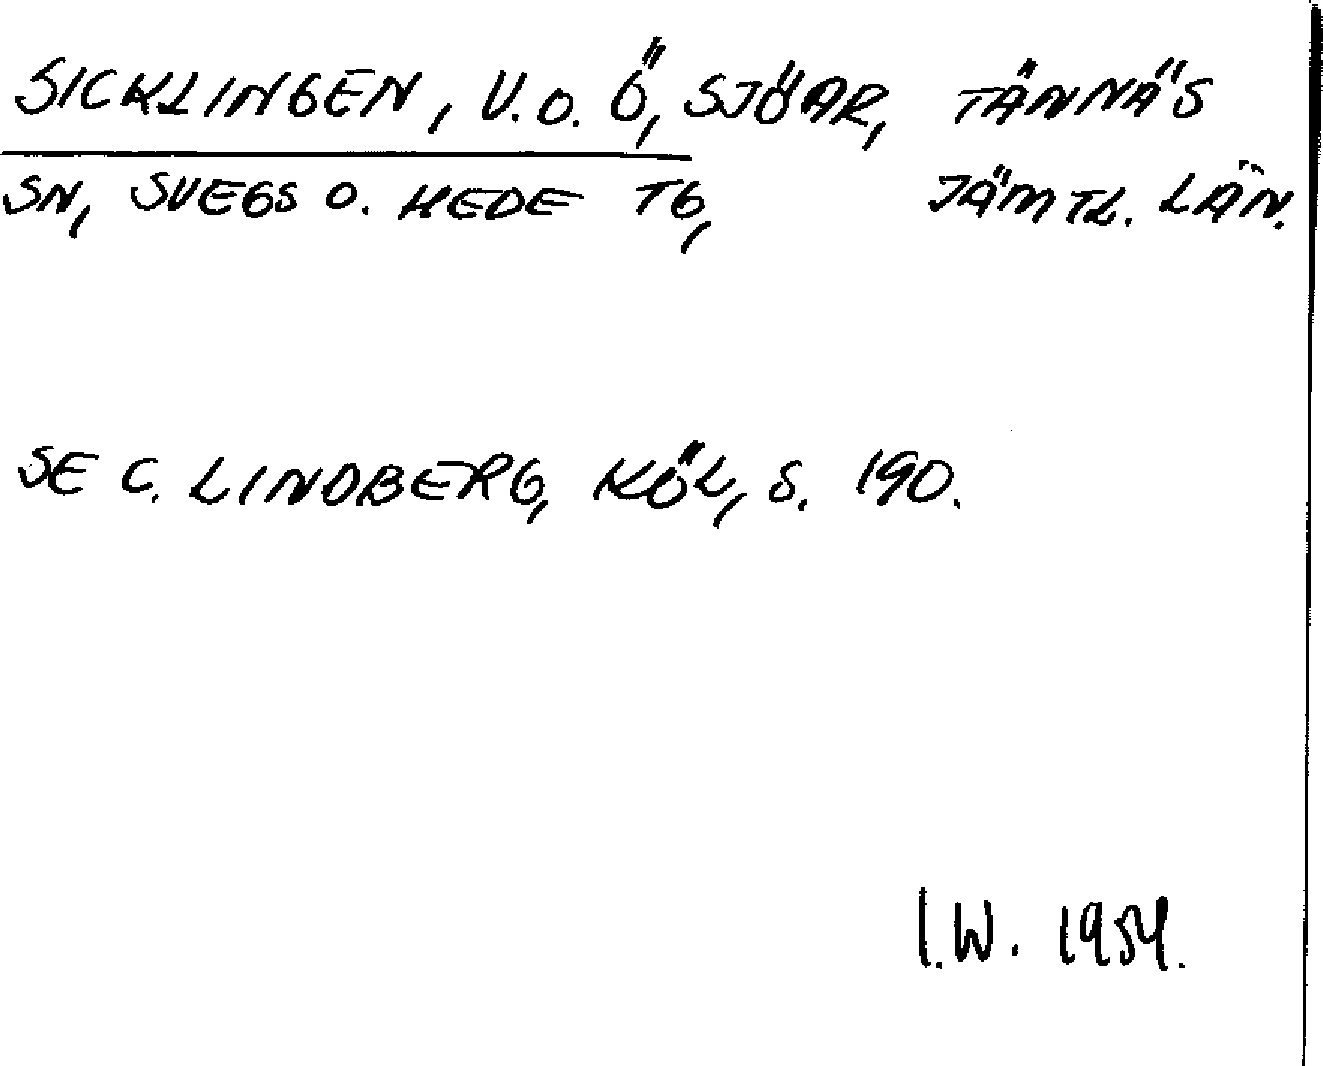 SICKLINGEN, V. O. Ö, SJÖAR, TÄNNÄS
SN, SVEGS O. HEDE TG, JÄMTL. LÄN.
SE C. LINDBERG, KÖL, S. 190.
I.W. 1954.